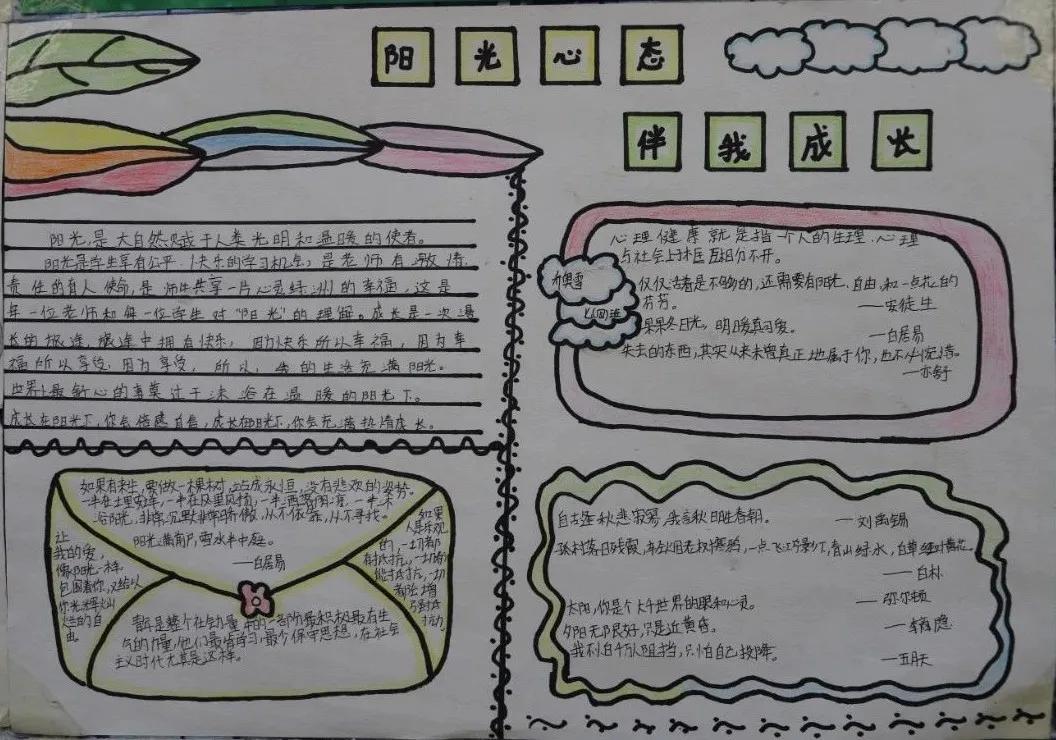 阳光心态
伴我成长
阳光是大自然赋于人类光明和温暖的使者。
阳光是学生享有公平、快乐的学习机会，是老师有激情、
责任的育人使命，是师生共享一片心灵绿洲的幸福，这是
每一位老师和每一位学生对“阳光”的理解。成长是一次漫
长的旅途，旅途中拥有快乐，因为快乐所以幸福，因为幸
福所以享受，因为享受，所以，我的生活充满阳光。
世界上最舒心的事莫过于沐浴在温暖的阳光下。
成长在阳光下，你会搭建自信，成长在阳光下，你会充满热情成长。
心理健康就是指一个人的生理、心理
与社会上相互相分不开。
仅仅活着是不够的，还需要有阳光、自由、和一点花的
芬芳。
——安徒生
杲杲冬日光，明暖真可爱。
——白居易
失去的东西，其实从来未曾真正地属于你，也不必惋惜。
——亦舒
如果有来生，要做一棵树，站成永恒，没有悲欢的姿势。
一半在土里安详，一半在风里飞扬，一半洒落阴凉，一半沐
浴阳光，非常沉默非常骄傲，从不依靠，从不寻找。
阳光满前户，雪水半中庭。
——白居易
让
我的爱，
像阳光一样，
包围着你，又给以
你光辉灿
烂的自
由
如果
人是乐观
的，一切都
有抵抗，一切都
能抵抗，一切
都会增
强抵
抗力
青年是整个社会力量中的一部分最积极最有生
气的力量，他们最肯学习，最少保守思想，在社会
主义时代尤其是这样。
自古逢秋悲寂寥，我言秋日胜春朝。
——刘禹锡
孤村落日残霞，轻烟老树寒鸦，一点飞鸿影下，青山绿水，白草红叶黄花。
——白朴
太阳，你是个大千世界的眼和心灵。
——弥尔顿
夕阳无限好，只是近黄昏。
——李商隐
我不怕千万人阻挡，只怕自己投降。
——五月天